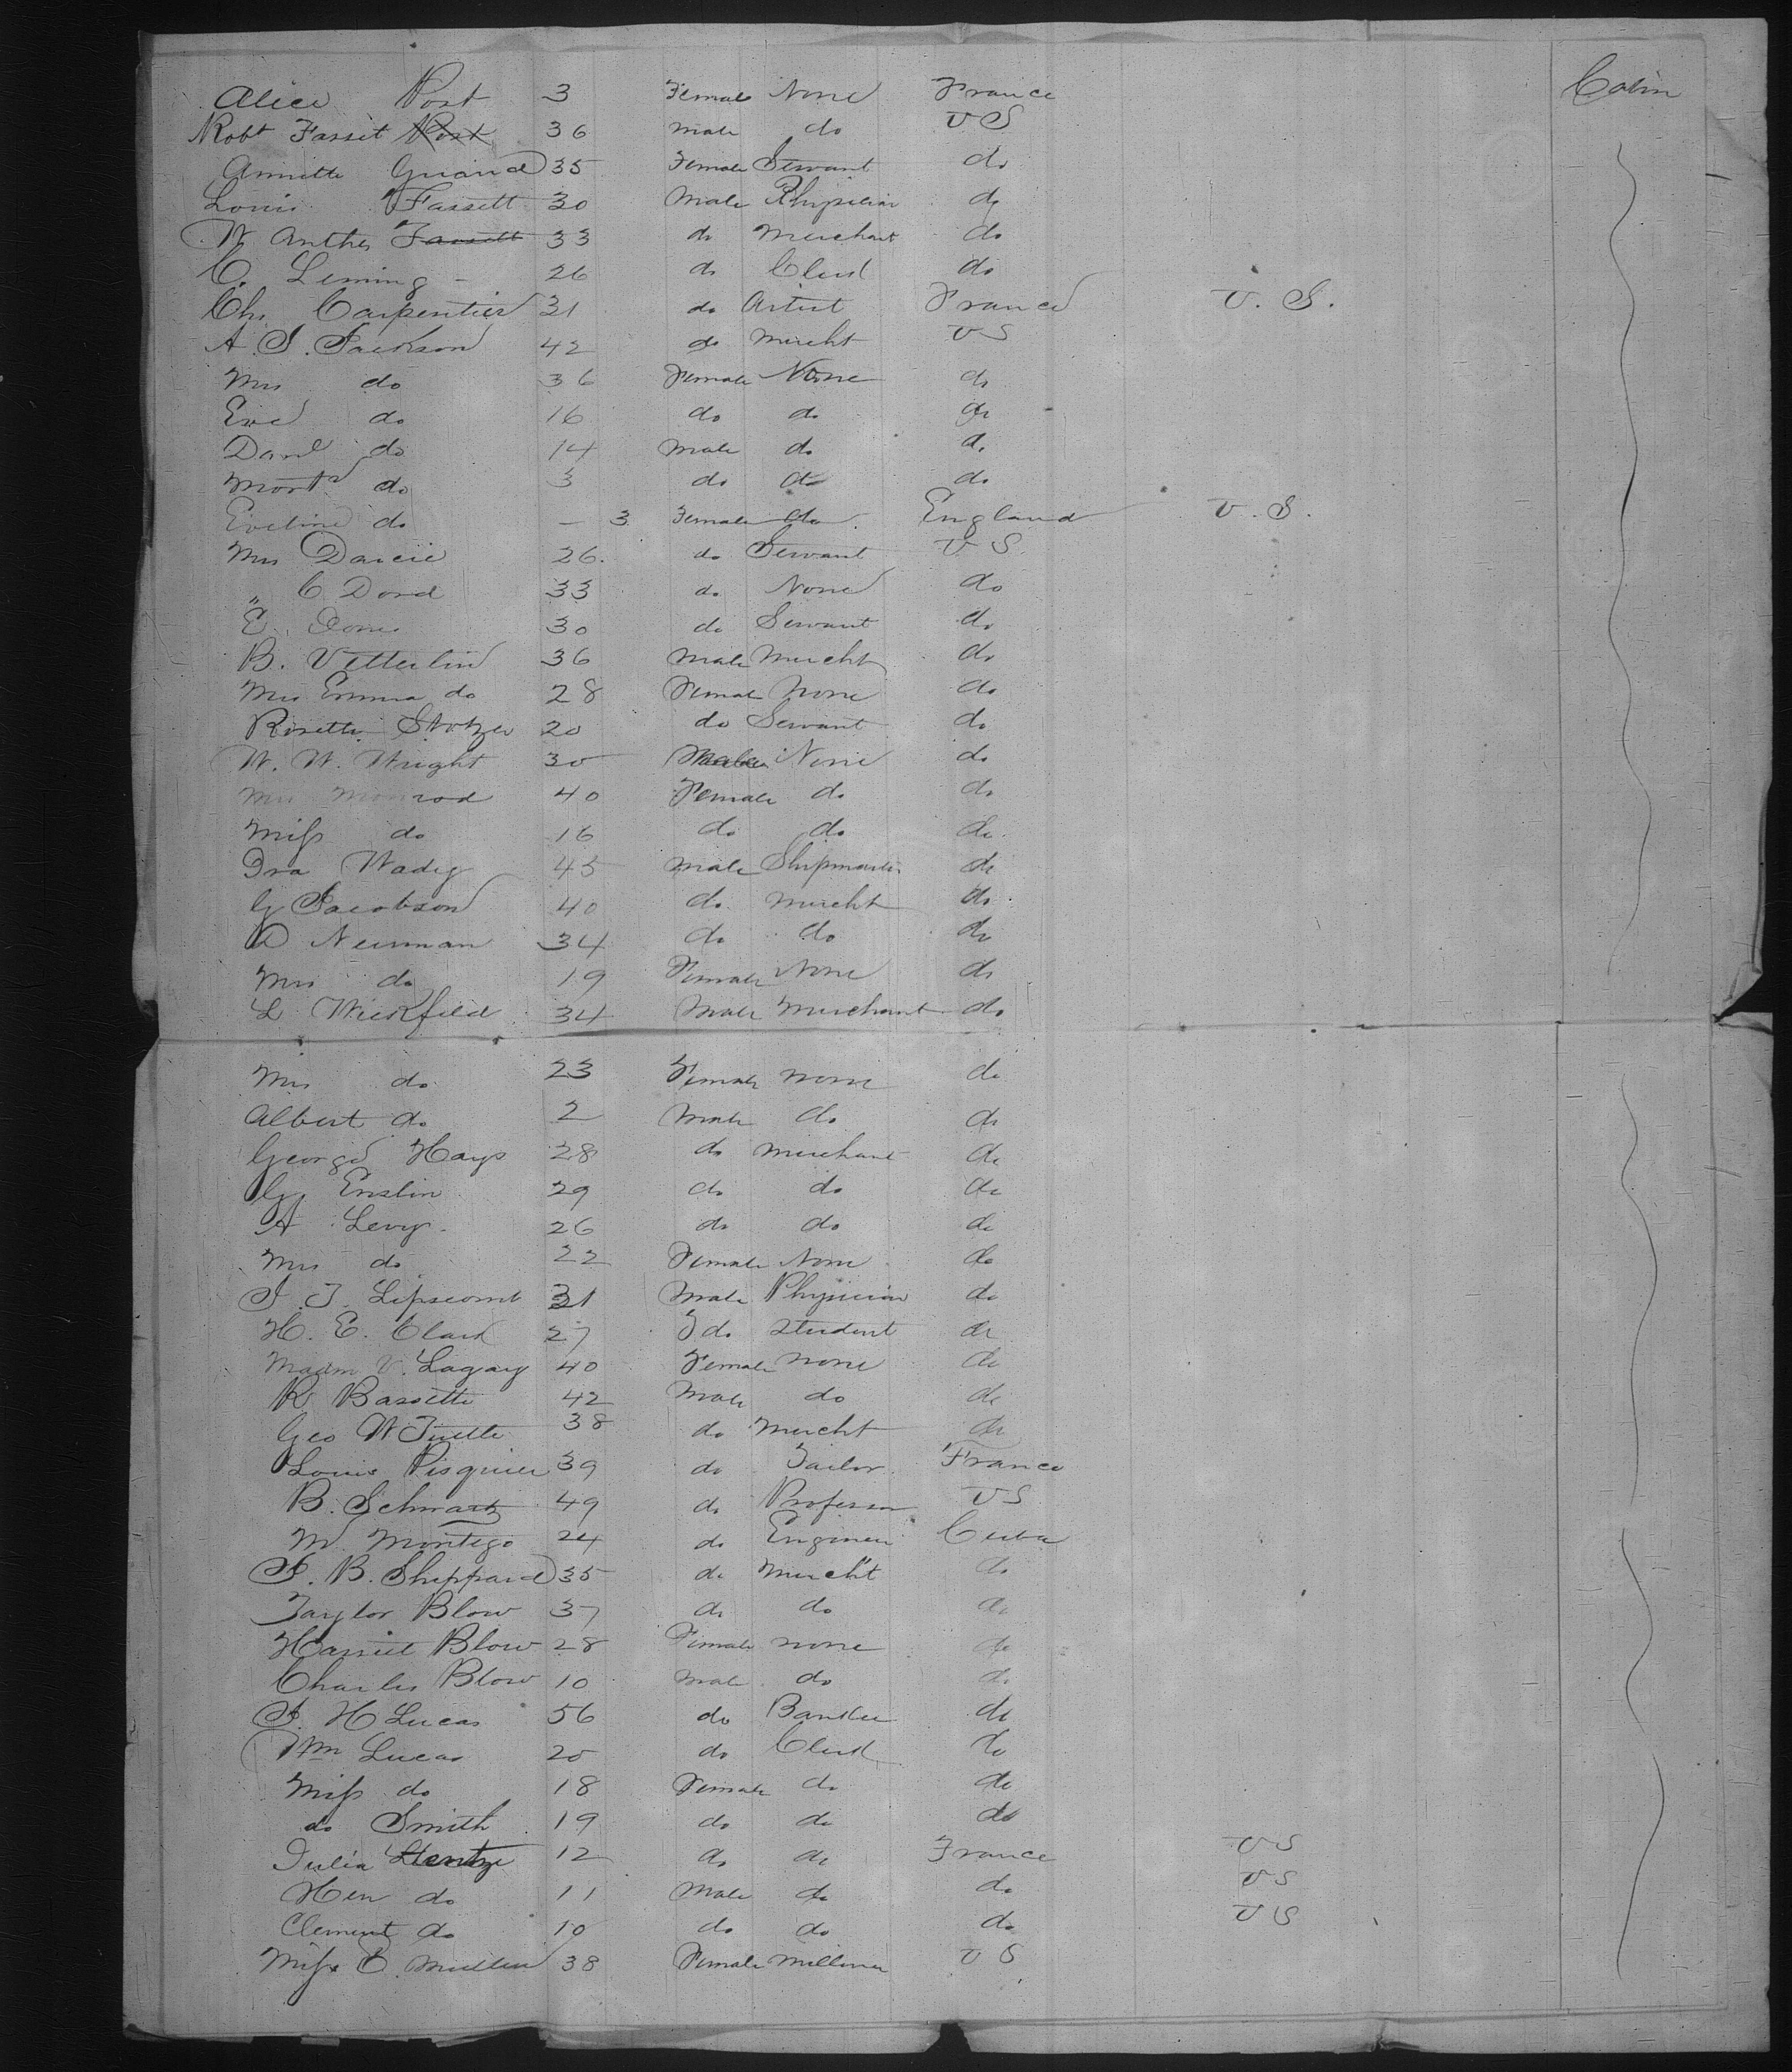 Alice Post 3 Female None France Cabin
Robt Fassit Post 36 male do US
Annette Guiard 35 Female Servant do
Louis Fassett 30 Male Physician do
W Anthes Fassett 33 do Merchant do
C. Leming - 26 do Clerk do
Ch. Carpentier 31 do Artist France U. S.
A. S. Jackson 42 do mercht US
Mrs do 36 Female None do
Eve do 16 do do do
Danl do 14 Male do do
Mont do 3 do do do
Eveline do - 3 Female do England U. S.
Mrs 26. do Servant US
" C Dord 33 do None do
E. 30 do Servant do
B. Vetterlin 36 Male Mercht do
Mrs Emma do 28 Female None do
Rosette Stotzer 20 do Servant do
W. W. Wright 30 Male None do
Mrs Monrod 40 Female do do
Miss do 16 do do do
Ira Wadey 45 Male Shipmaster do
G Jacobson 40 do mercht do
D Neuman 34 do do do
Mrs do 19 Female None do
L Wickfield 34 Male Merchant do
Mrs do 23 Female none do
Albert do 2 Male do do
George Hays 28 do Merchant do
G. Enslin 29 do do do
A Levy. 26 do do do
Mrs do 22 Female None do
J. T. Lipscomb 31 Male Physician do
H. E. Clark 27 do Student do
Madm V. Lagary 40 Female none do
R Bassette 42 Male do do
Geo W Tuttle 38 do Mercht do
Louis Pisquier 39 do Tailor France
B. Schwartz 49 do Professor US
M. Montego 24 do Engineer Cuba
J. B. Sheppard 35 do Mercht do
Taylor Blow 37 do do do
Harriet Blow 28 Female none do
Charles Blow 10 Male do do
J. H Lucas 56 do Banker do
Wm Lucas 20 do Clerk do
Miss do 18 Female do do
do Smith 19 do do do
Julia 12 do do France US
Hen do 11 Male do do US
Clement do 10 do do do US
Miss E. Mullen 38 Female Milliner US